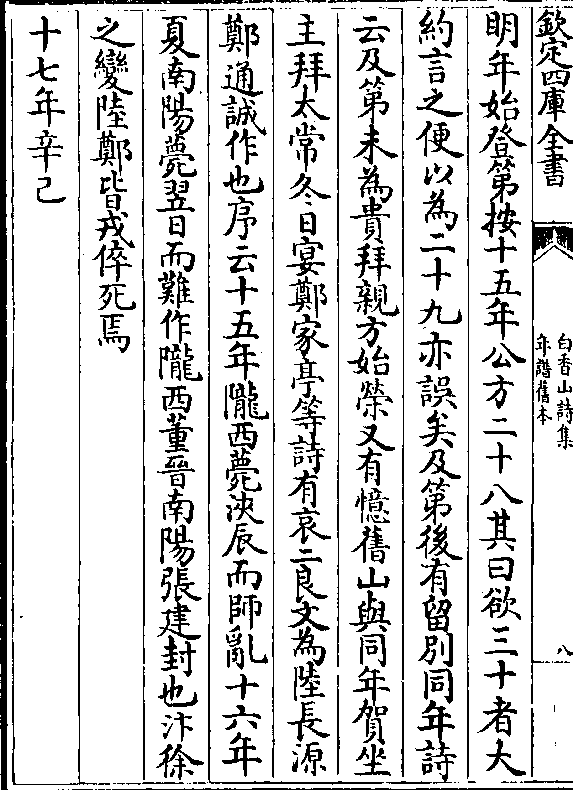 欽定四庫全書
白香山詩集
年譜舊本
八
明年始登第按十五年公方二十八其曰欲三十者大
約言之便以為二十九亦誤矣及第後有留別同年詩
云及第未為貴拜親方始榮又有憶舊山與同年賀坐
主拜太常冬日宴鄭家亭等詩有哀二良文為陸長源
鄭通誠作也序云十五年隴西薨浹辰而師亂十六年
夏南陽薨翌日而難作隴西董晉南陽張建封也汴徐
之變陸鄭皆戎倅死焉
十七年辛己